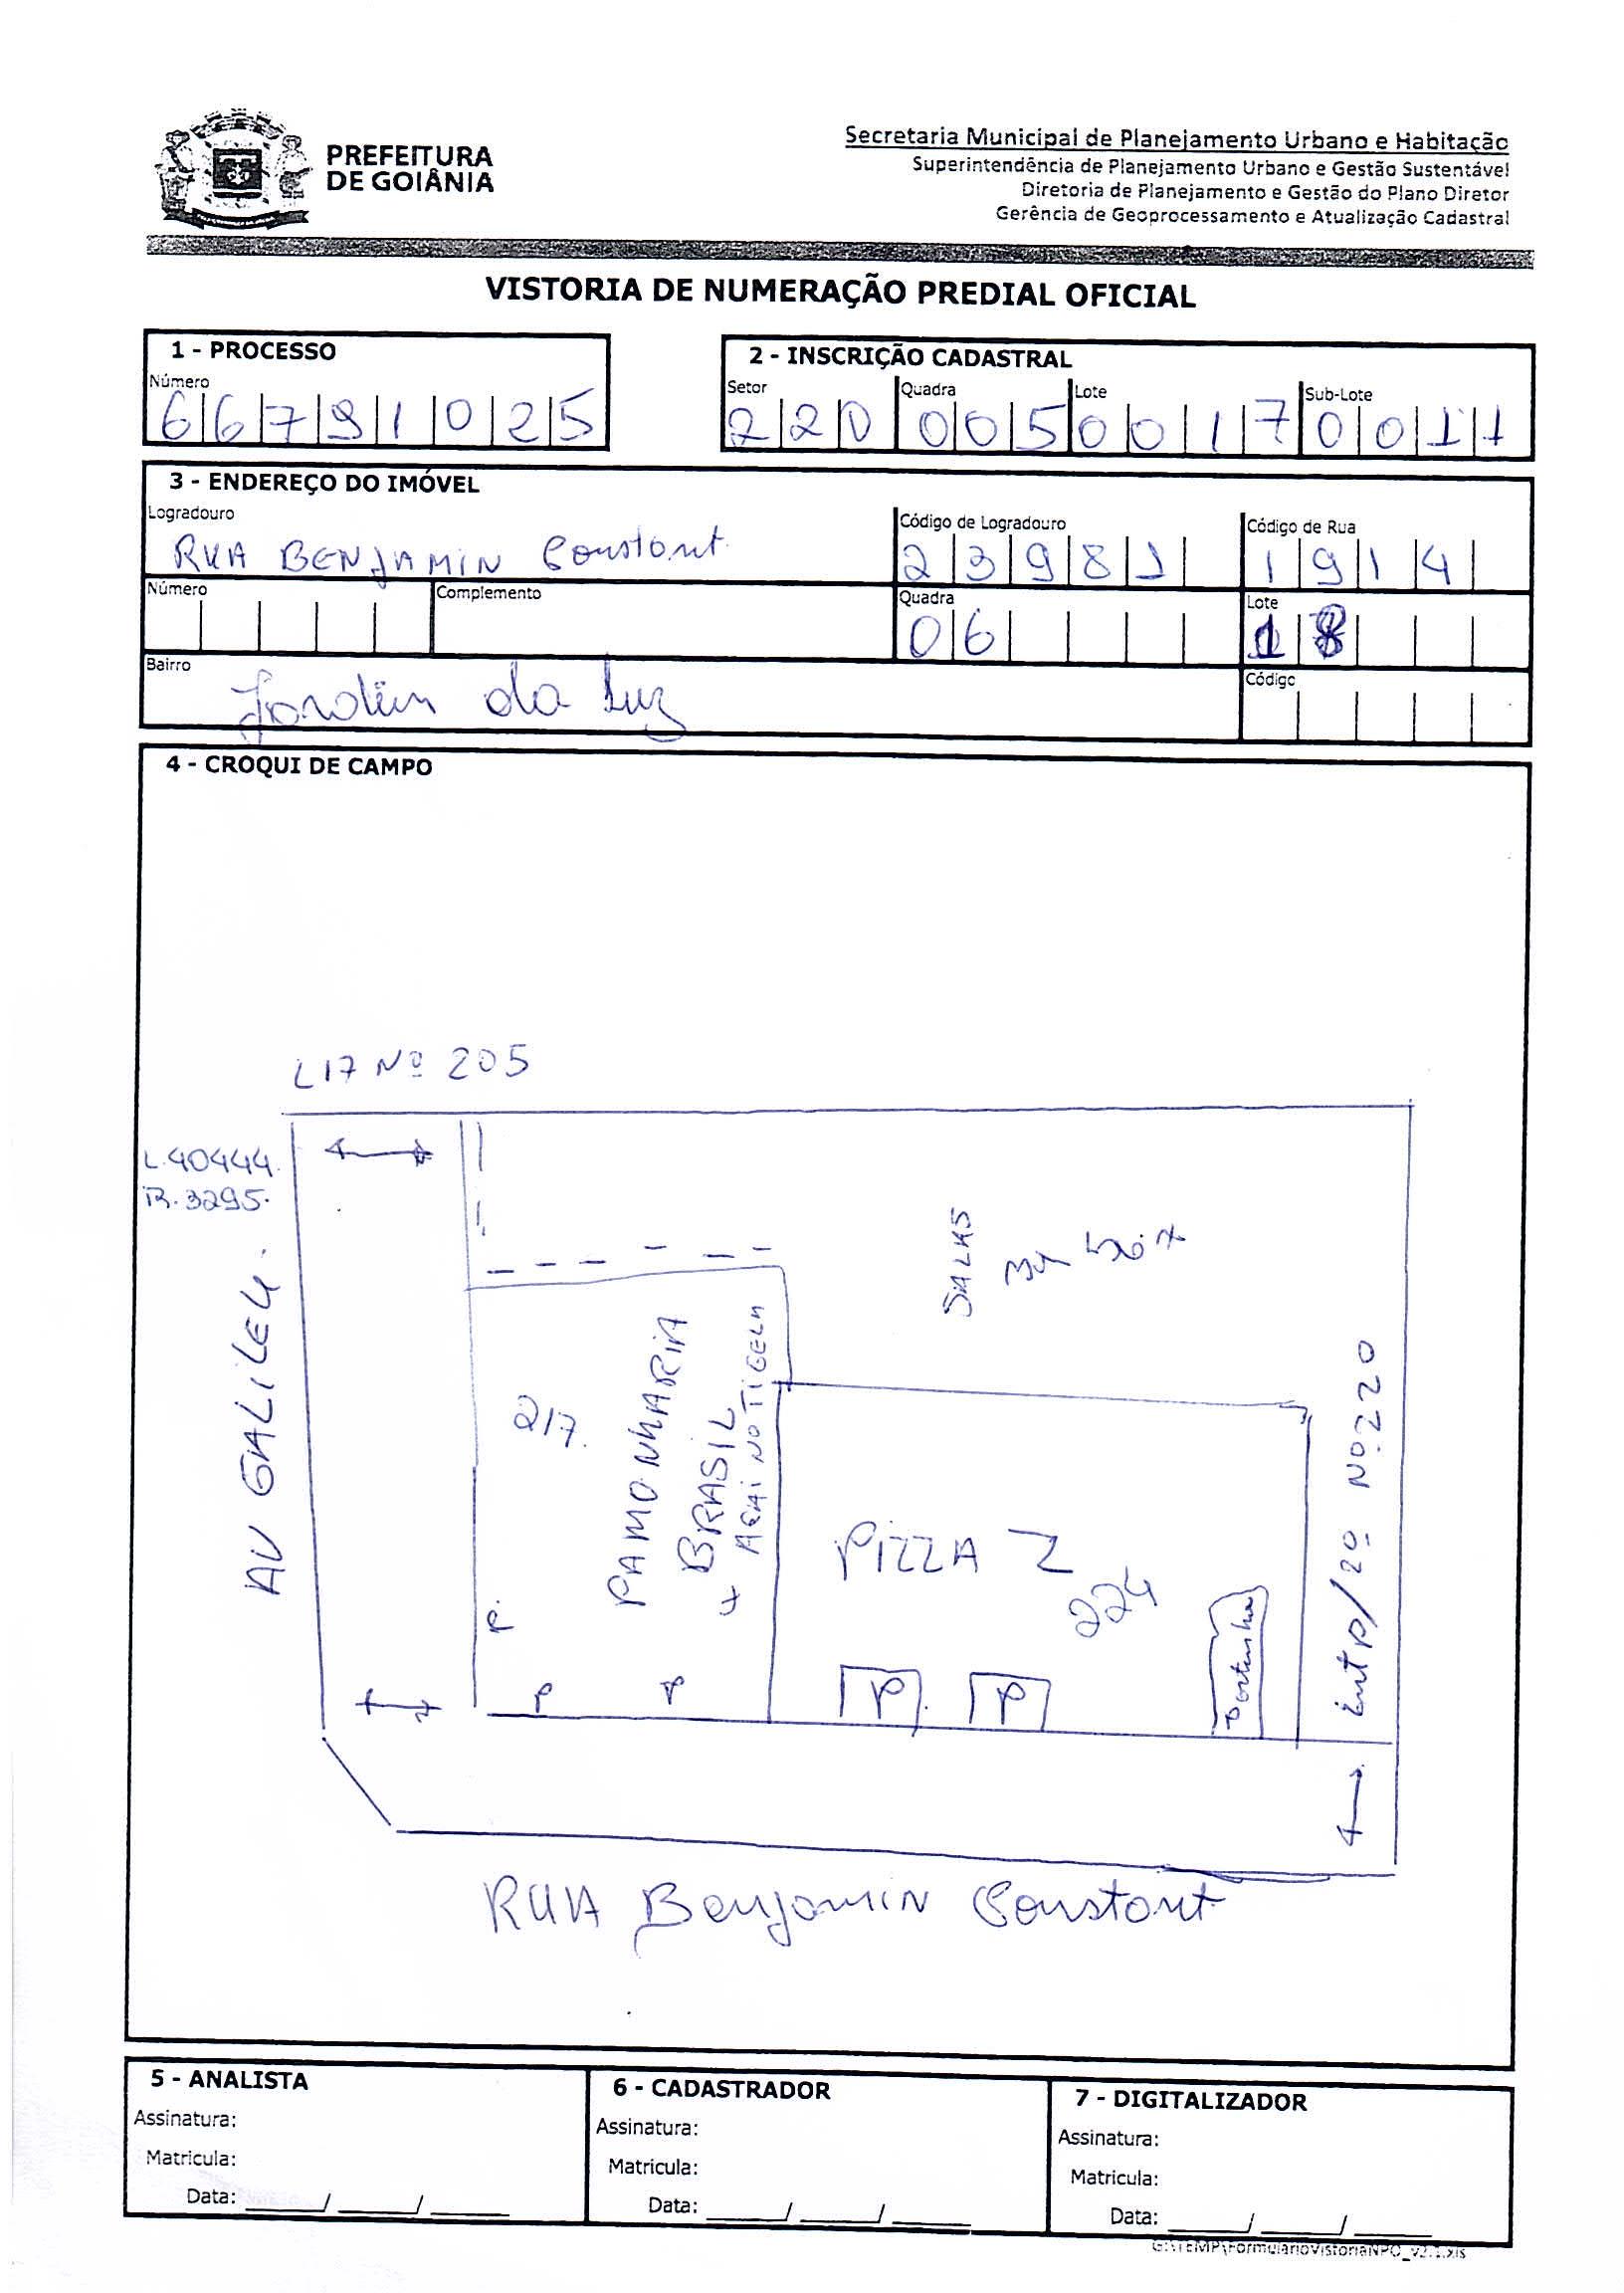 PREFEITURA
DE GOIÂNIA
Secretaria Municipal de Planejamento Urbano e Habitação
Superintendência de Planejamento Urbano e Gestão Sustentável
Diretoria de Planejamento e Gestão do Plano Diretor
Gerência de Geoprocessamento e Atualização Cadastral
VISTORIA DE NUMERAÇÃO PREDIAL OFICIAL
1 - PROCESSO
Número
66791025
2 - INSCRIÇÃO CADASTRAL
Setor Quadra Lote Sub-Lote
220 005 0017 0011
3 - ENDEREÇO DO IMÓVEL
Logradouro Código de Logradouro Código de Rua
RUA BENJAMIN Constant 23981 1914
Número Complemento Quadra Lote
06 18
Bairro Código
Jardim da Luz
4 - CROQUI DE CAMPO
L17 Nº 205
L.40444.
R.3295.
AV GALILEU.
SALAS
217.
PAMONHARIA
BRASIL
AÇAI NO TIGELA
PIZZA Z
224
P.
P
P
P
P
Portinha
Ent p/2º Nº 220
RUA Benjamin Constant
5 - ANALISTA
Assinatura:
Matricula:
Data: ____/____/____
6 - CADASTRADOR
Assinatura:
Matricula:
Data: ____/____/____
7 - DIGITALIZADOR
Assinatura:
Matricula:
Data: ____/____/____
G:\TEMP\FormularioVistoriaNPO_v2.1.xls